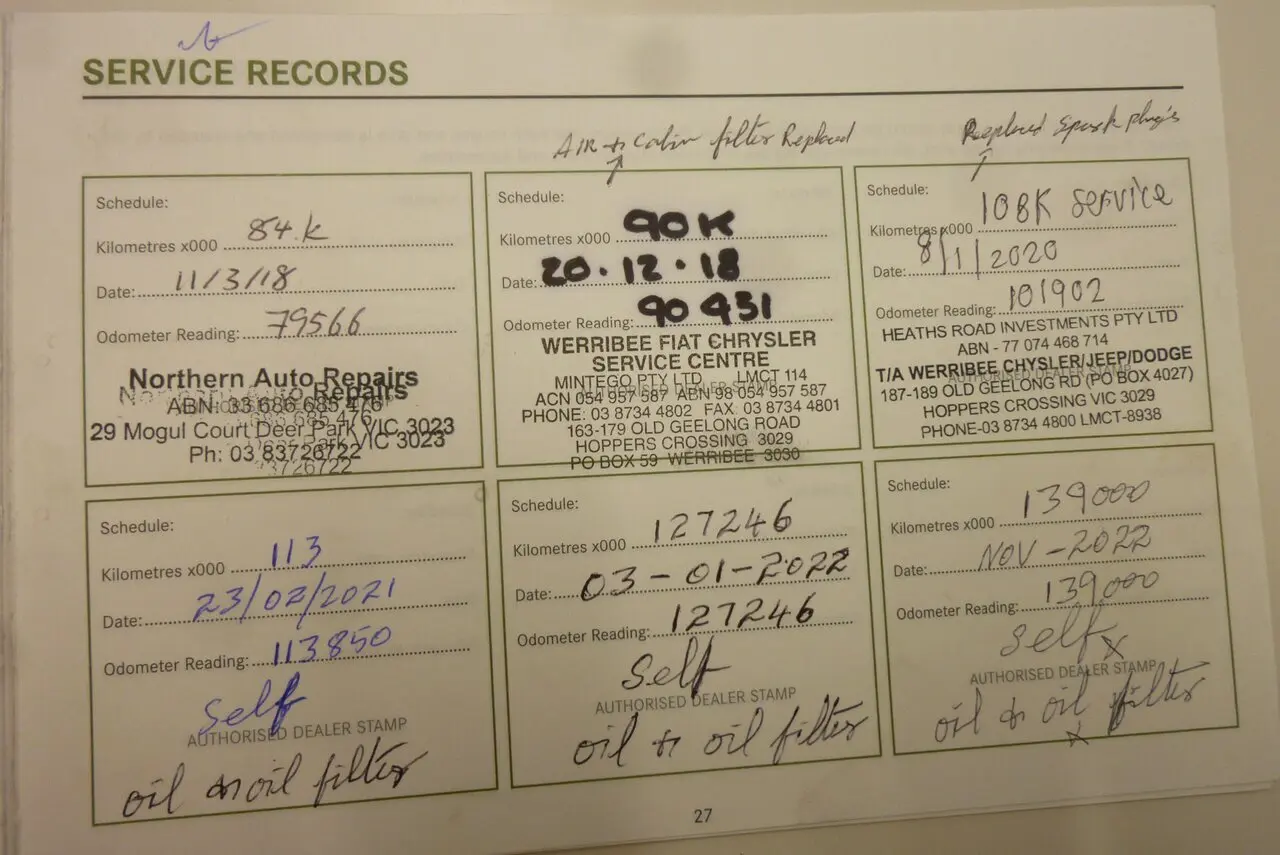 SERVICE RECORDS
AIR + Cabin filter Replaced
Replaced Spark plug's
Schedule:
Kilometres x000 84.k
Date: 11/3/18
Odometer Reading: 79566
Northern Auto Repairs
ABN: 33 686 685 476
29 Mogul Court Deer Park VIC 3023
Ph: 03 83726722
Schedule:
Kilometres x000 90K
Date: 20.12.18
Odometer Reading: 90 431
WERRIBEE FIAT CHRYSLER
SERVICE CENTRE
MINTEGO PTY LTD LMCT 114
AUTHORISED DEALER STAMP
ACN 054 957 587 ABN 98 054 957 587
PHONE: 03 8734 4802 FAX 03 8734 4801
163-179 OLD GEELONG ROAD
HOPPERS CROSSING 3029
PO BOX 59 WERRIBEE 3030
Schedule:
108K service
Kilometres x000
Date: 8/1/2020
Odometer Reading: 101902
HEATHS ROAD INVESTMENTS PTY LTD
ABN - 77 074 468 714
T/A WERRIBEE CHYSLER/JEEP/DODGE
AUTHORISED DEALER STAMP
187-189 OLD GEELONG RD (PO BOX 4027)
HOPPERS CROSSING VIC 3029
PHONE-03 8734 4800 LMCT-8938
Schedule:
Kilometres x000 113
Date: 23/02/2021
Odometer Reading: 113850
Self
AUTHORISED DEALER STAMP
oil & oil filter
Schedule:
Kilometres x000 127246
Date: 03-01-2022
Odometer Reading: 127246
Self
AUTHORISED DEALER STAMP
oil + oil filter
Schedule:
Kilometres x000 139000
Date: NOV-2022
Odometer Reading: 139000
Self x
AUTHORISED DEALER STAMP
oil & oil filter
x
27